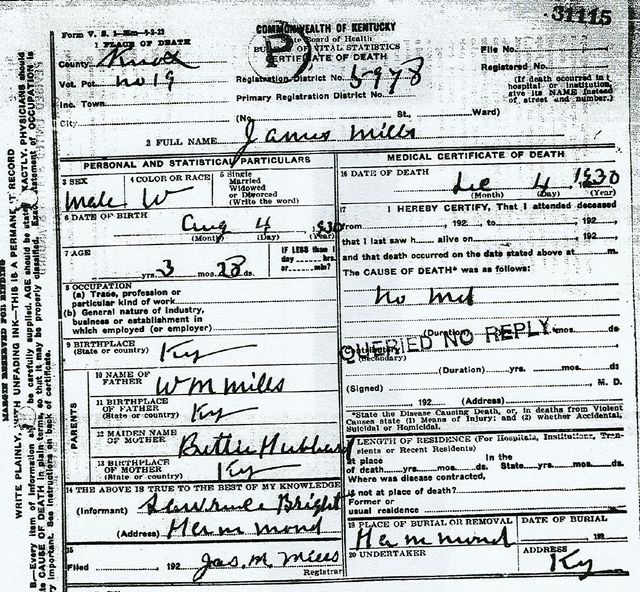 31115
COMMONWEALTH OF KENTUCKY
State Board of Health
BUREAU OF VITAL STATISTICS
CERTIFICATE OF DEATH
1 PLACE OF DEATH
County Knox
Vot. Pct. No 19
Inc. Town
City
Registration District No. 5978
Primary Registration District No.
(No. St., Ward)
File No.
Registered No.
(If death occurred in a
hospital or institution,
give its NAME instead
of street and number.)
2 FULL NAME James Mills
PERSONAL AND STATISTICAL PARTICULARS
3 SEX
Male
4 COLOR OR RACE
W
5 Single
Married
Widowed
or Divorced
(Write the word)
6 DATE OF BIRTH
Aug 4 1930
(Month) (Day) (Year)
7 AGE
yrs. 3 mos. 28 ds.
IF LESS than 1
day hrs.
or min?
8 OCCUPATION
(a) Trade, profession or
particular kind of work
(b) General nature of industry,
business or establishment in
which employed (or employer)
9 BIRTHPLACE
(State or country) Ky
PARENTS
10 NAME OF
FATHER WM Mills
11 BIRTHPLACE
OF FATHER
(State or country) Ky
12 MAIDEN NAME
OF MOTHER Bettie Hubbard
13 BIRTHPLACE
OF MOTHER
(State or country) Ky
14 THE ABOVE IS TRUE TO THE BEST OF MY KNOWLEDGE
(Informant) Bright
(Address) Hammond
15
Filed 192 Jas. M. Mills
Registrar
MEDICAL CERTIFICATE OF DEATH
16 DATE OF DEATH
Dec 4 1930
(Month) (Day) (Year)
17 I HEREBY CERTIFY, That I attended deceased
from , 192 , to , 192
that I last saw h alive on , 192
and that death occurred on the date stated above at m.
The CAUSE OF DEATH* was as follows:
No Med
(Duration) yrs. mos. ds.
QUERIED NO REPLY
(Secondary)
(Duration) yrs. mos. ds.
(Signed) M. D.
192 (Address)
*State the Disease Causing Death, or, in deaths from Violent
Causes state (1) Means of Injury; and (2) whether Accidental,
Suicidal or Homicidal.
LENGTH OF RESIDENCE (For Hospitals, Institutions, Tran-
sients or Recent Residents)
At place In the
of death yrs. mos. ds. State yrs. mos. ds.
Where was disease contracted,
if not at place of death?
Former or
usual residence
19 PLACE OF BURIAL OR REMOVAL
Hammond
DATE OF BURIAL
192
20 UNDERTAKER
ADDRESS
Ky
MARGIN RESERVED FOR BINDING
WRITE PLAINLY, WITH UNFADING INK—THIS IS A PERMANENT RECORD